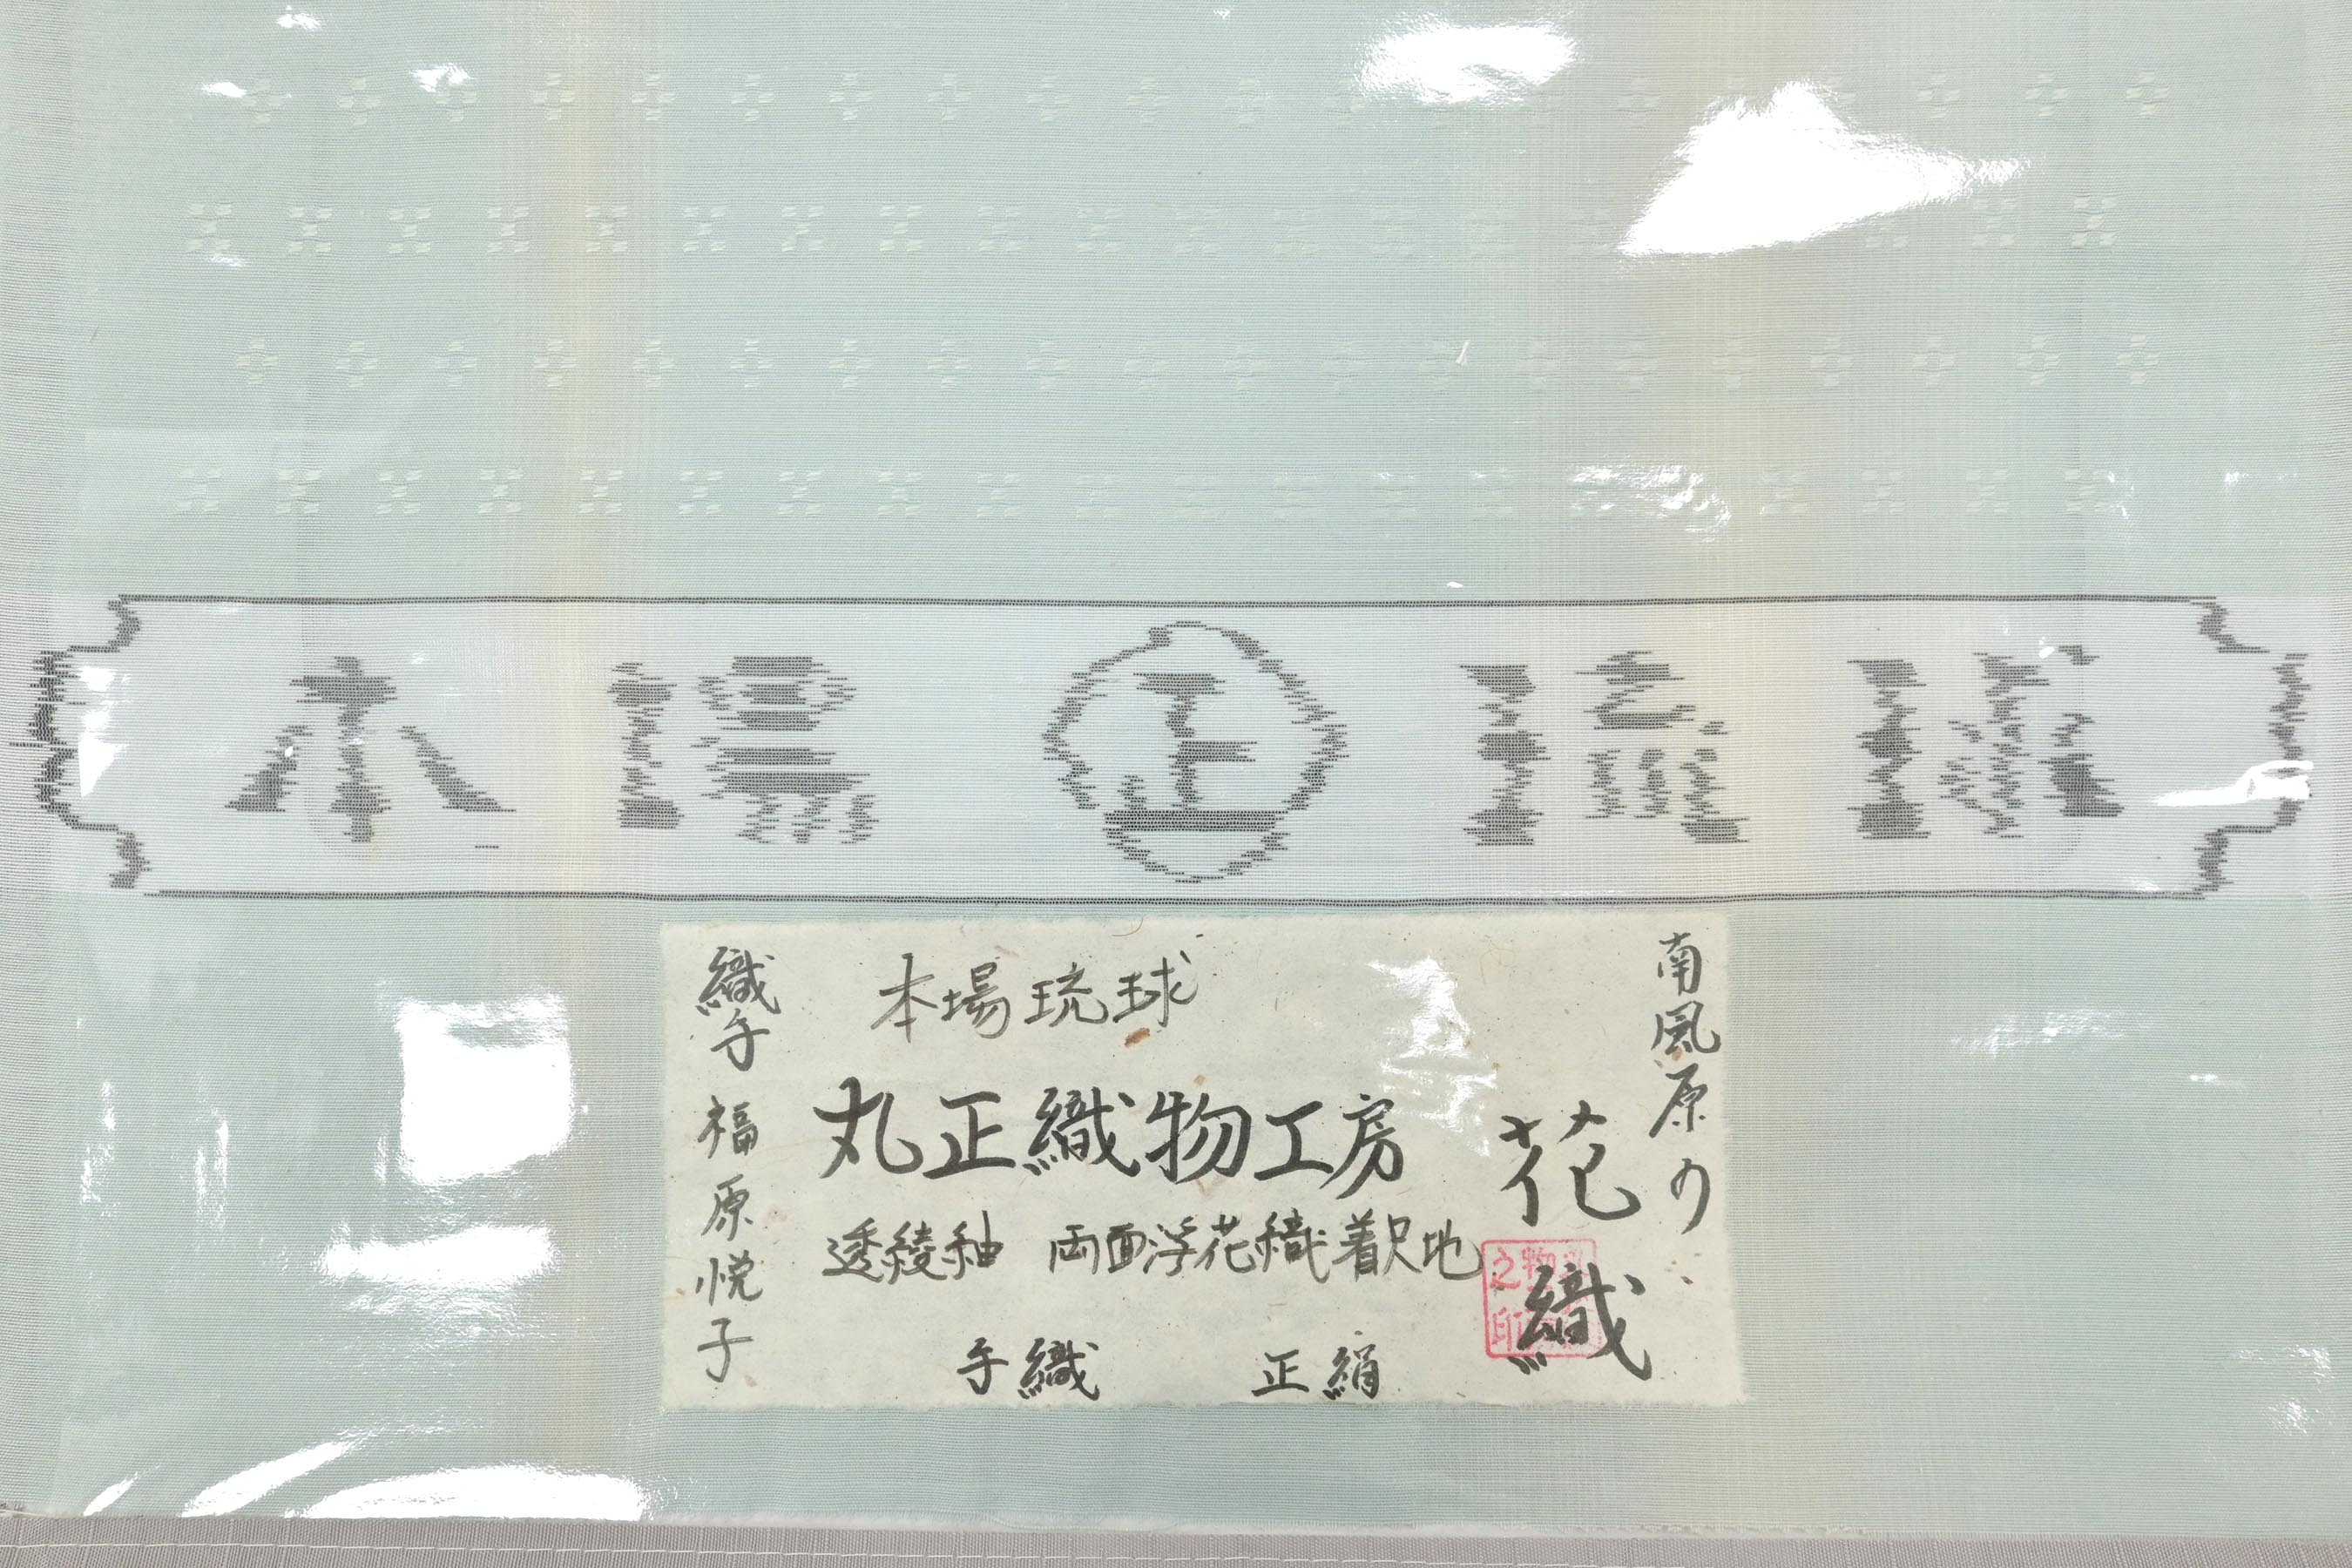 本場㊣琉球
南風原の
花織
本場琉球
丸正織物工房
透綾紬 両面浮花織着尺地
手織 正絹
織子 福原悦子